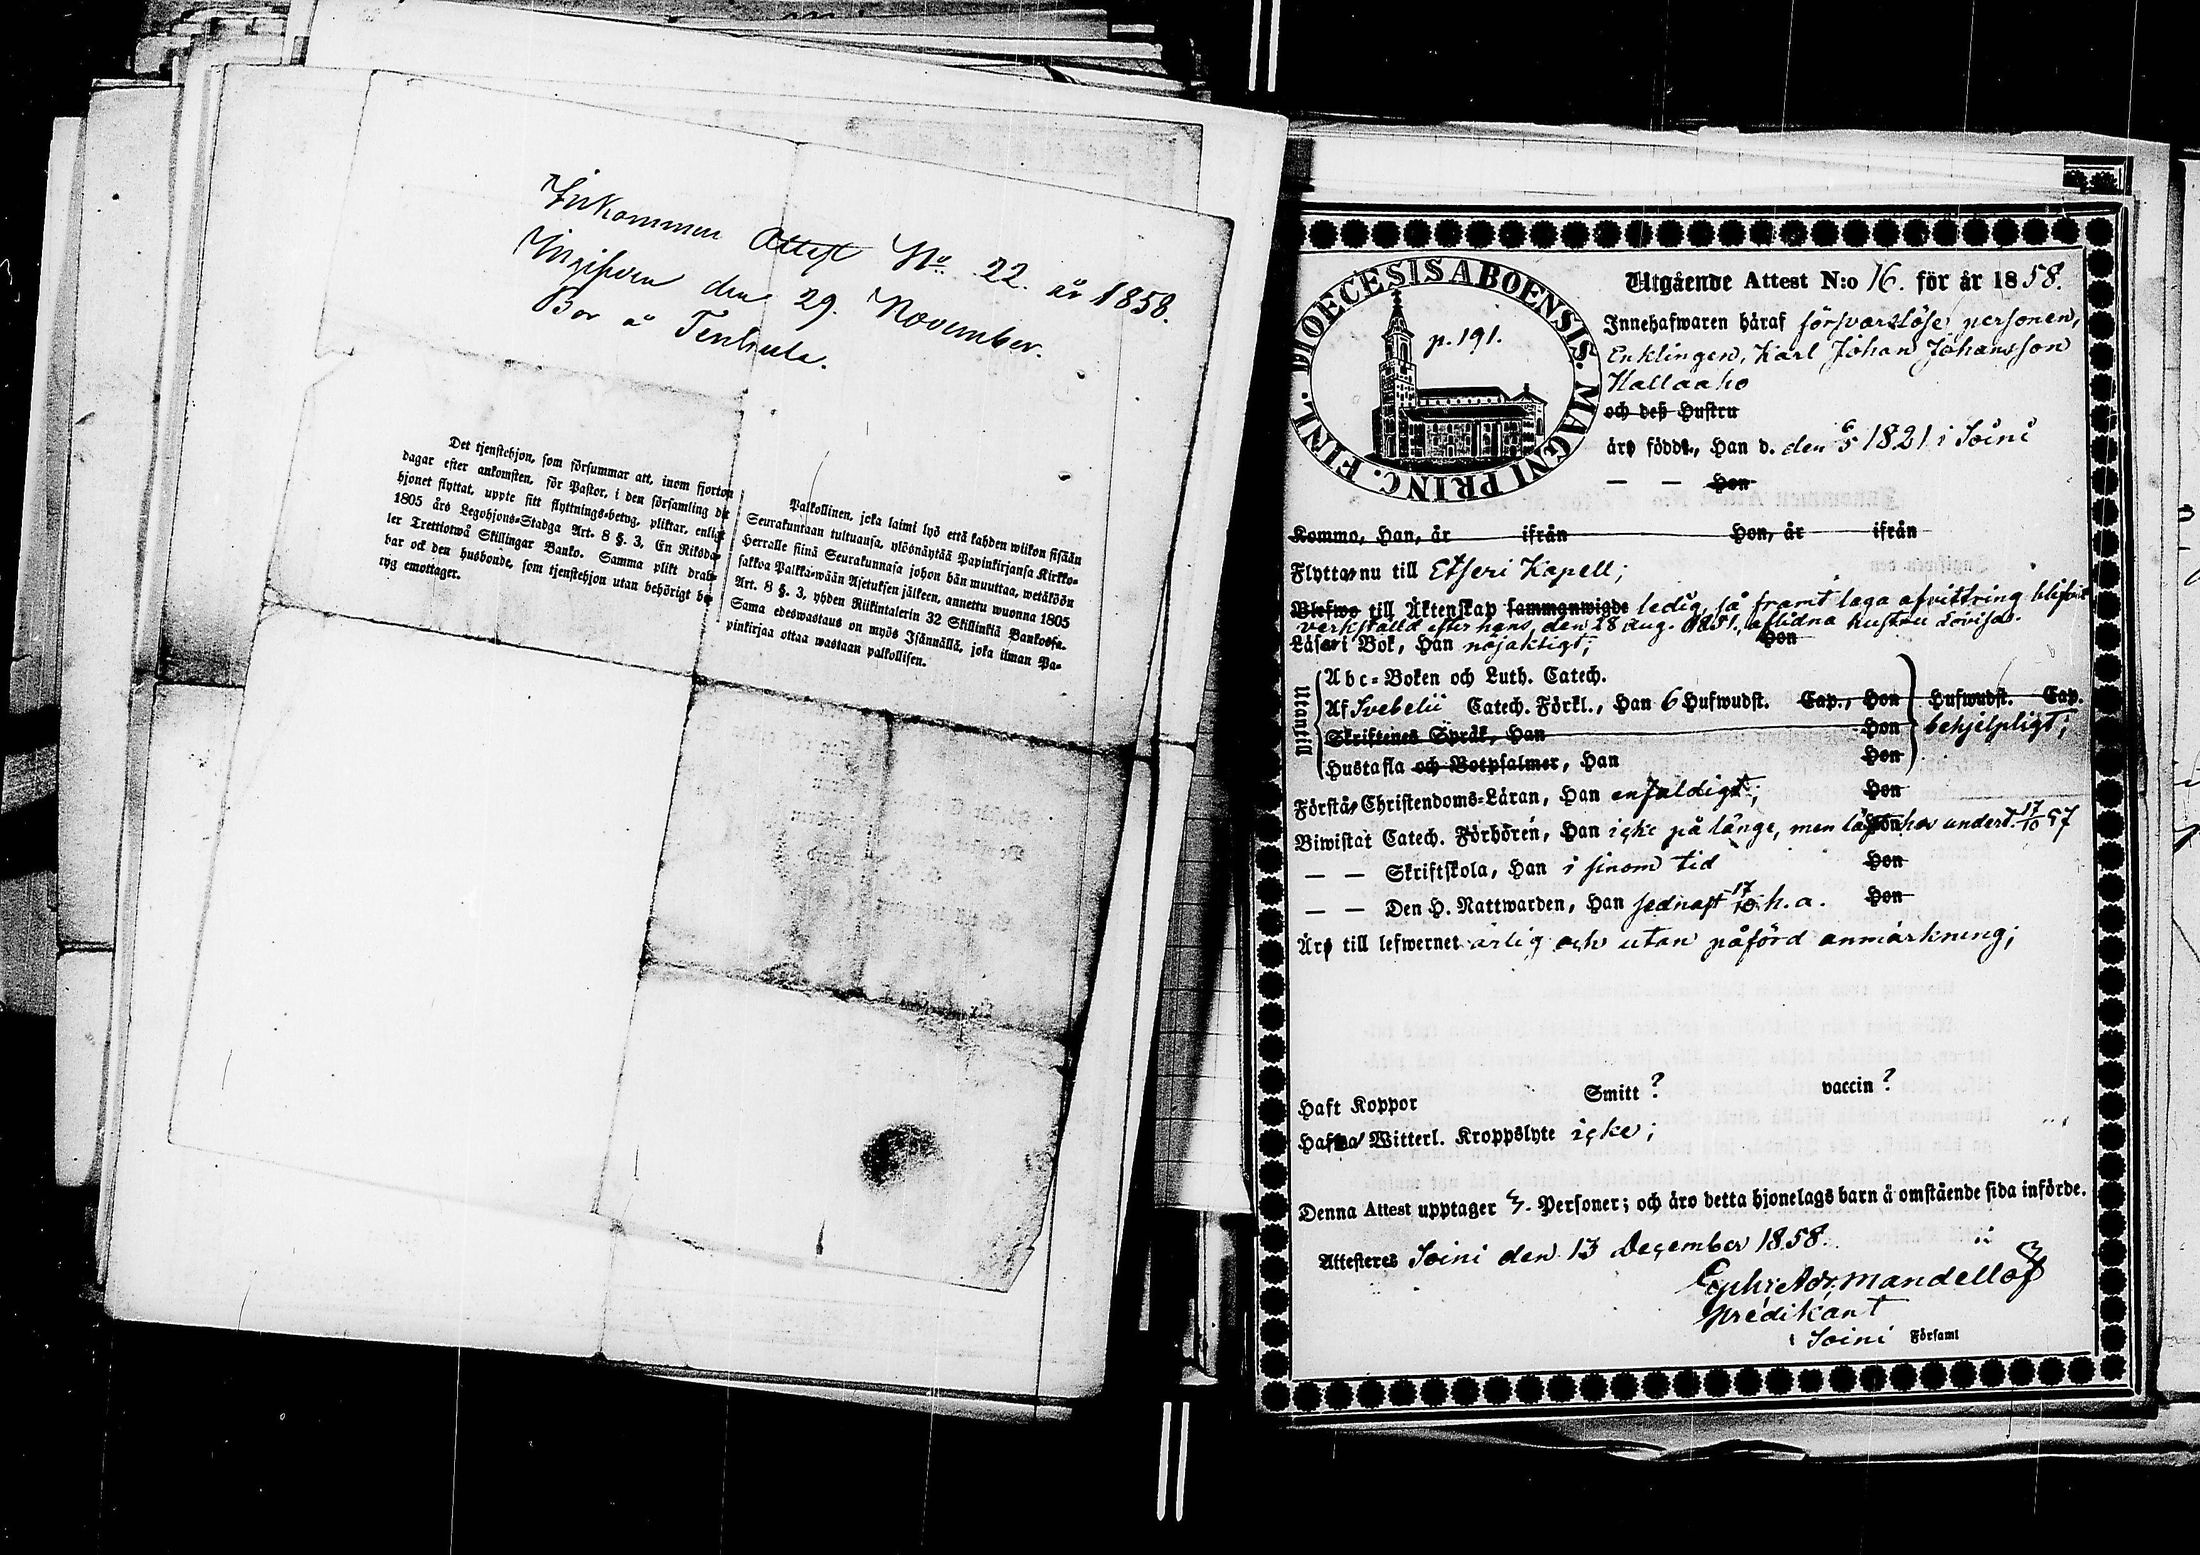 Inkommen Attest No. 22. år 1858.
Ingifven den 29. November.
Bor å Tenhula.
Det tjenstehjon, som försummar att, inom fjorton
dagar efter ankomsten, för Pastor, i den församling dit
hjonet flyttat, uppte sitt flyttnings-betyg, pliktar, enligt
1805 års Legohjons-Stadga Art. 8 §. 3, En Riksda-
ler Trettiotwå Skillingar Banko. Samma plikt drab-
bar ock den husbonde, som tjenstehjon utan behörigt be-
tyg emottager.
Palkollinen, joka laimi lyö että kahden wiikon sisään
Seurakuntaan tultuansa, ylösnäytää Papinkirjansa Kirkko-
Herralle siinä Seurakunnasa johon hän muuttaa, wetäköön
sakkoa Palkka-wään Asetuksen jälkeen, annettu wuonna 1805
Art. 8 §. 3, yhden Riikintalerin 32 Skillinkiä Bankossa.
Sama edeswastaus on myös Isännällä, joka ilman Pa-
pinkirjaa ottaa wastaan palkollisen.
DIOECESIS ABOENSIS. MAGNI PRINC. FINL.
p. 191.
Utgående Attest N:o 16. för år 1858.
Innehafwaren häraf försvarslöse personen,
Enklingen, Karl Johan Johansson
Kallaaho
och deß Hustru
äro födde, Han d. den 6/5 1821 i Soini
— — Hon
Kommo, Han, år ifrån Hon, år ifrån
Flytta nu till Etseri Kapell;
Blefwo till Äktenskap sammanwigde ledig, så framt laga afvittring blifvit
verkställd efter hans, den 28 Aug. 1851, aflidna hustru Lovisa.
Läsa i Bok, Han nöjaktigt; Hon
Utantill
Abc-Boken och Luth. Catech.
Af Svebelii Catech. Förkl., Han 6 Hufwudst. Cap., Hon Hufwudst. Cap.
Skriftenes Språk, Han Hon behjelpligt;
Hustafla och Botpsalmer, Han Hon
Förstå Christendoms-Läran, Han enfaldigt; Hon
Biwistat Catech. Förhören, Han icke på länge, men Hon undert. 17/10 57
— — Skriftskola, Han i sinom tid Hon
— — Den H. Nattwarden, Han sednast 17/10 h. a. Hon
Äro till lefwernet ärlig och utan påförd anmärkning;
Haft Koppor Smitt? vaccin?
Hafwa Witterl. Kroppslyte icke;
Denna Attest upptager 3. Personer; och äro detta hjonelags barn å omstående sida införde.
Attesteras Soini den 13 December 1858.
Ephr. Adr. Mandellöf
Predikant
i Soini Församl